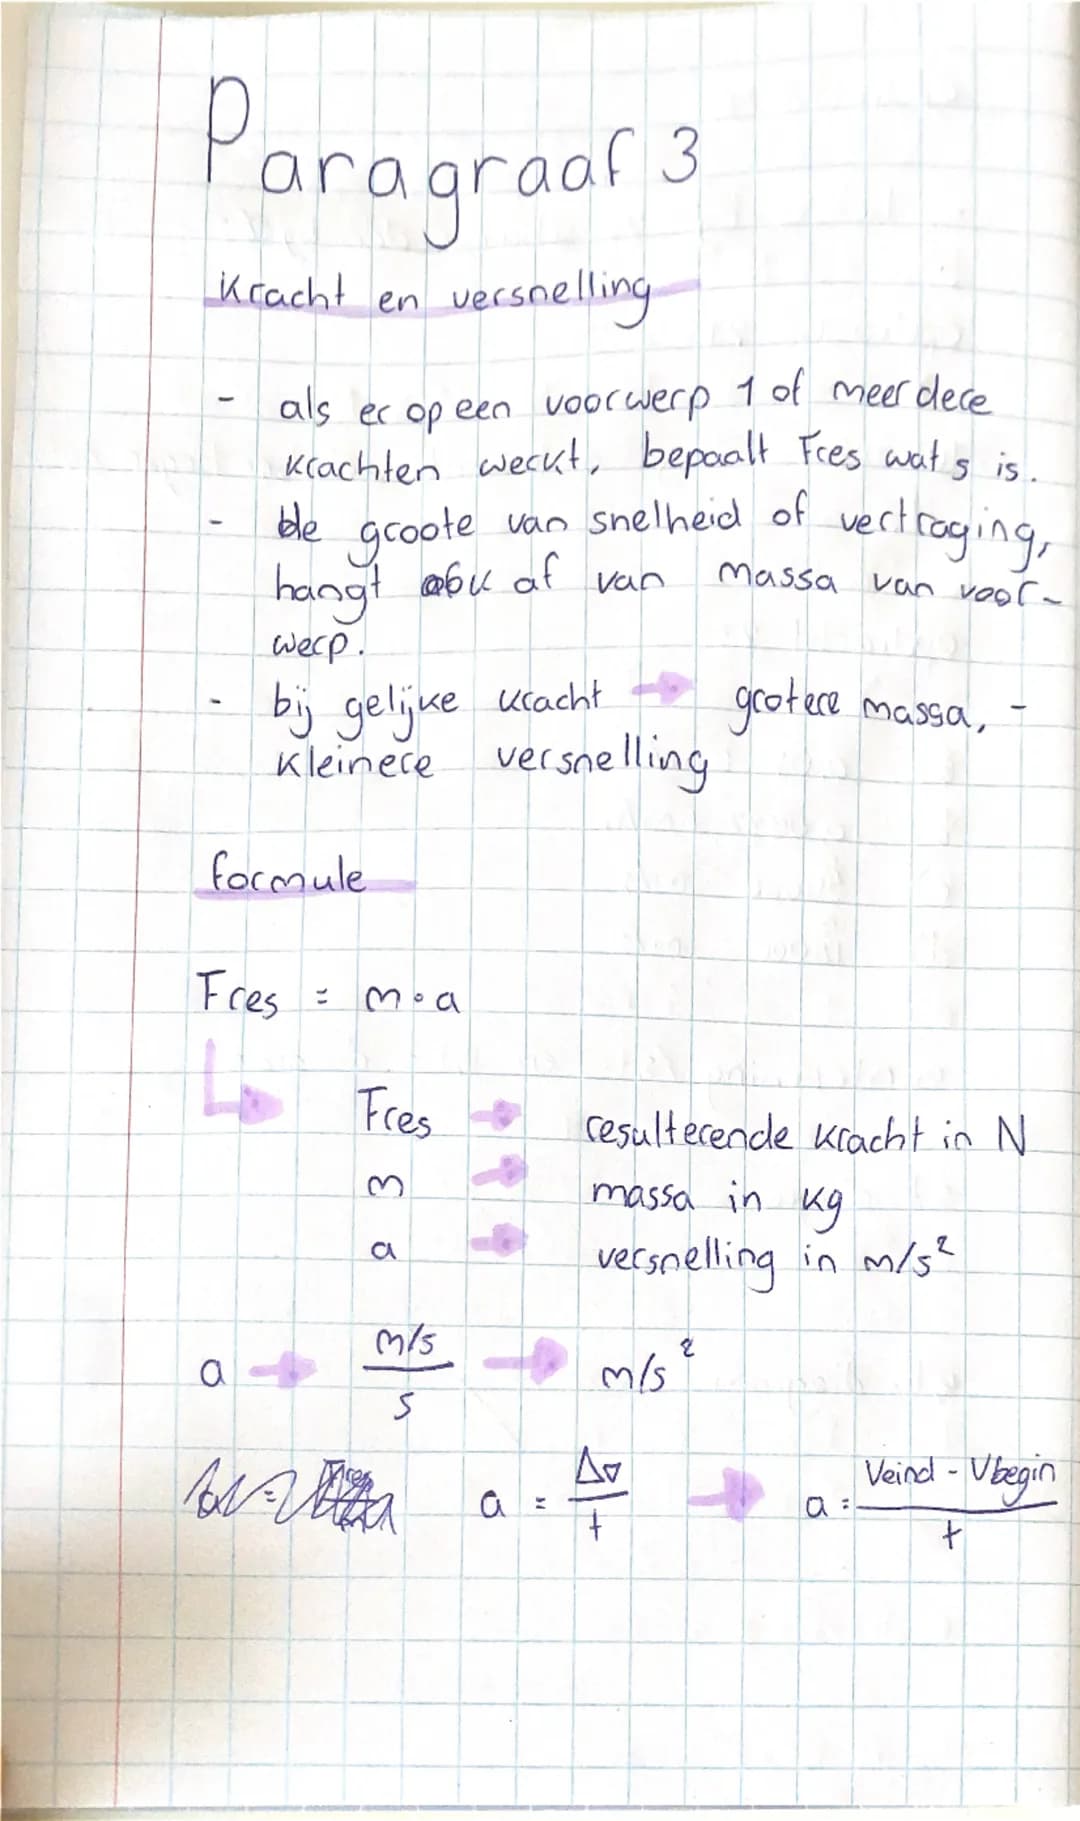 Paragraaf 3
Kracht en versnelling
- als er op een voorwerp 1 of meerdere
krachten werkt, bepaalt Fres wat s is.
- de groote van snelheid of vertraging,
hangt ook af van massa van voor-
werp.
- bij gelijke kracht → grotere massa, -
kleinere versnelling
formule
Fres = m · a
Fres → resulterende kracht in N
m → massa in kg
a → versnelling in m/s²
a → m/s / s → m/s²
a = Δv / t → a = Veind - Vbegin / t